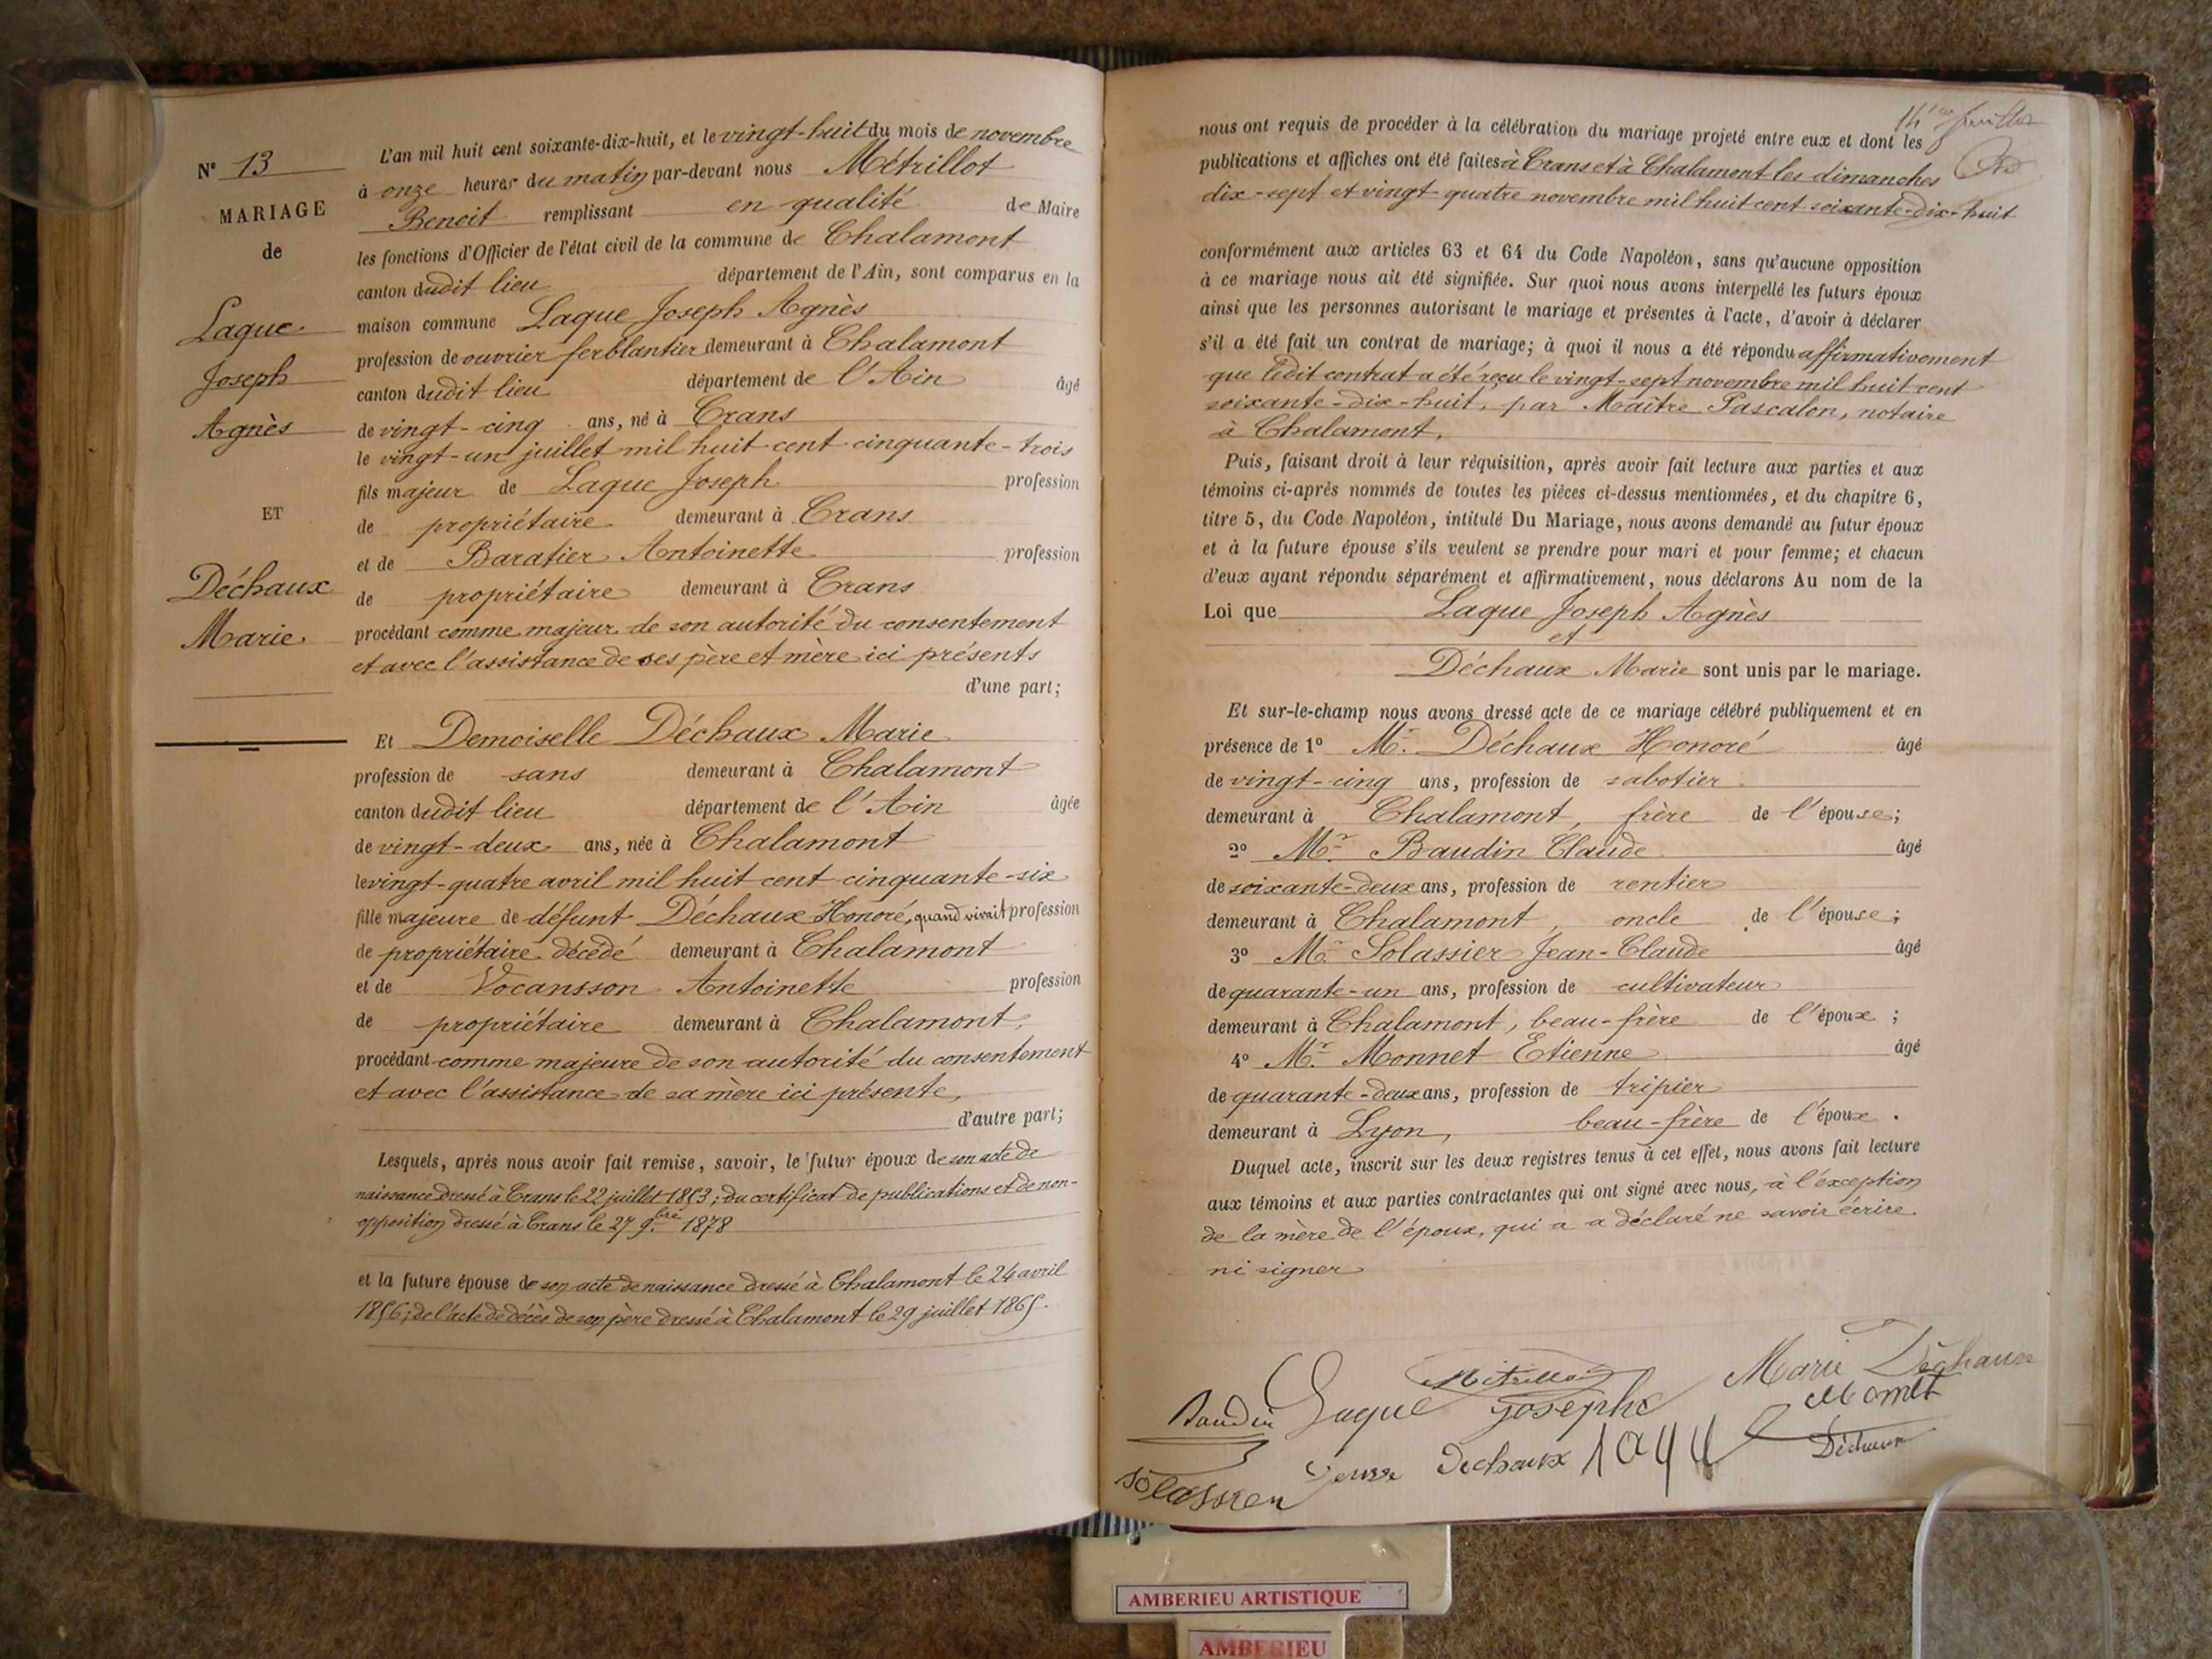 N° 13
MARIAGE
de
Laque
Joseph
Agnès
ET
Déchaux
Marie
L'an mil huit cent soixante-dix-huit, et le vingt-huit du mois de novembre
à onze heures du matin par-devant nous Métrillot
Benoit remplissant en qualité de Maire
les fonctions d'Officier de l'état civil de la commune de Chalamont
canton dudit lieu département de l'Ain, sont comparus en la
maison commune Laque Joseph Agnès
profession de ouvrier ferblantier demeurant à Chalamont
canton dudit lieu département de l'Ain âgé
de vingt-cinq ans, né à Crans
le vingt-un juillet mil huit cent cinquante-trois
fils majeur de Laque Joseph profession
de propriétaire demeurant à Crans
et de Baratier Antoinette profession
de propriétaire demeurant à Crans
procédant comme majeur de son autorité du consentement
et avec l'assistance de ses père et mère ici présents
d'une part;
Et Demoiselle Déchaux Marie
profession de sans demeurant à Chalamont
canton dudit lieu département de l'Ain âgée
de vingt-deux ans, née à Chalamont
le vingt-quatre avril mil huit cent cinquante-six
fille majeure de défunt Déchaux Honoré, quand vivait profession
de propriétaire décédé demeurant à Chalamont
et de Vocansson Antoinette profession
de propriétaire demeurant à Chalamont,
procédant comme majeure de son autorité du consentement
et avec l'assistance de sa mère ici présente,
d'autre part;
Lesquels, après nous avoir fait remise, savoir, le futur époux de son acte de
naissance dressé à Crans le 22 juillet 1853; du certificat de publications et de non-
opposition dressé à Crans le 27 9.bre 1878
et la future épouse de son acte de naissance dressé à Chalamont le 24 avril
1856; de l'acte de décès de son père dressé à Chalamont le 29 juillet 1865.
nous ont requis de procéder à la célébration du mariage projeté entre eux et dont les
publications et affiches ont été faites à Crans et à Chalamont les dimanches
dix-sept et vingt-quatre novembre mil huit cent soixante-dix-huit
conformément aux articles 63 et 64 du Code Napoléon, sans qu'aucune opposition
à ce mariage nous ait été signifiée. Sur quoi nous avons interpellé les futurs époux
ainsi que les personnes autorisant le mariage et présentes à l'acte, d'avoir à déclarer
s'il a été fait un contrat de mariage; à quoi il nous a été répondu affirmativement
que ledit contrat a été reçu le vingt-sept novembre mil huit cent
soixante-dix-huit, par Maître Pascalon, notaire
à Chalamont,
Puis, faisant droit à leur réquisition, après avoir fait lecture aux parties et aux
témoins ci-après nommés de toutes les pièces ci-dessus mentionnées, et du chapitre 6,
titre 5, du Code Napoléon, intitulé Du Mariage, nous avons demandé au futur époux
et à la future épouse s'ils veulent se prendre pour mari et pour femme; et chacun
d'eux ayant répondu séparément et affirmativement, nous déclarons Au nom de la
Loi que Laque Joseph Agnès
et
Déchaux Marie sont unis par le mariage.
Et sur-le-champ nous avons dressé acte de ce mariage célébré publiquement et en
présence de 1° Mr. Déchaux Honoré âgé
de vingt-cinq ans, profession de sabotier
demeurant à Chalamont, frère de l'épouse;
2° Mr. Baudin Claude âgé
de soixante-deux ans, profession de rentier
demeurant à Chalamont, oncle de l'épouse;
3° Mr. Solassier Jean-Claude âgé
de quarante-un ans, profession de cultivateur
demeurant à Chalamont, beau-frère de l'époux;
4° Mr. Monnet Etienne âgé
de quarante-deux ans, profession de tripier
demeurant à Lyon, beau-frère de l'époux.
Duquel acte, inscrit sur les deux registres tenus à cet effet, nous avons fait lecture
aux témoins et aux parties contractantes qui ont signé avec nous, à l'exception
de la mère de l'époux, qui a a déclaré ne savoir écrire
ni signer
Métrillot Marie Déchaux
Baudin Laque Josephe Monet
Dechaux Déchaux
Solassier
AMBERIEU ARTISTIQUE
AMBERIEU